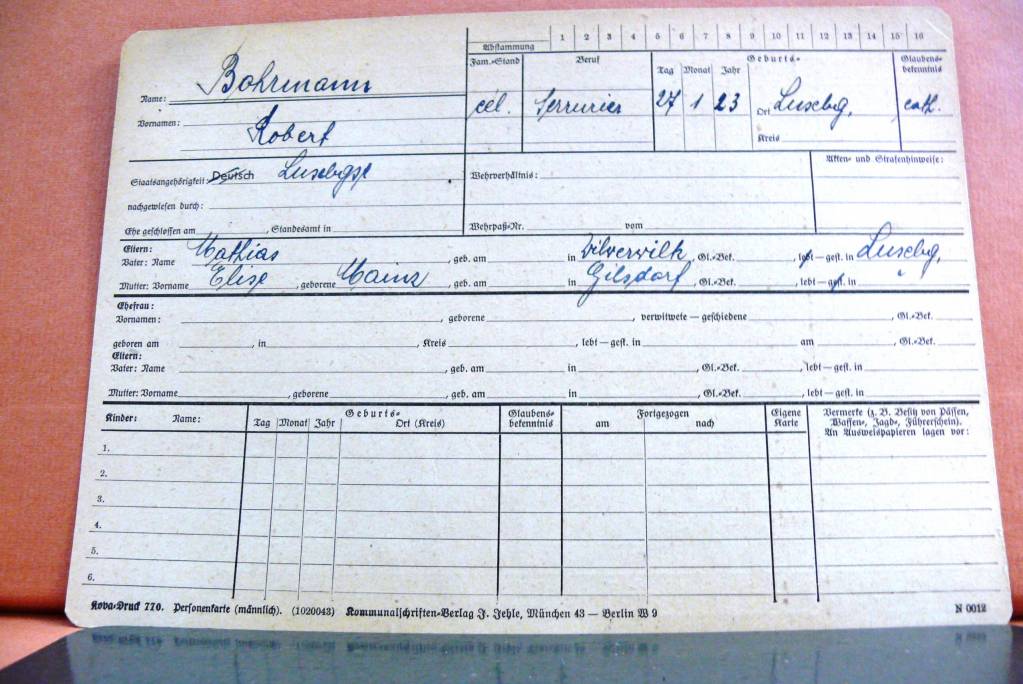 1 2 3 4 5 6 7 8 9 10 11 12 13 14 15 16
Abstammung
Fam.=Stand Beruf Geburts= Glaubens=
Tag Monat Jahr bekenntnis
Name: Bohrmann
cél. Serrurier 27 1 23 Ort Luxbg, cath.
Vornamen: Robert
Kreis
Akten= und Strafenhinweise:
Staatsangehörigkeit: Deutsch Luxbgse
Wehrverhältnis:
nachgewiesen durch:
Ehe geschlossen am , Standesamt in
Wehrpaß=Nr. vom
Eltern:
Vater: Name Mathias , geb. am in Vilverwilk , Gl.=Bek. , lebt—gest. in Luxbg,
Mutter: Vorname Elise , geborene Mainz , geb. am in Gilsdorf , Gl.=Bek. , lebt—gest. in "
Ehefrau:
Vornamen: , geborene , verwitwete — geschiedene , Gl.=Bek.
geboren am , in , Kreis , lebt—gest. in am , Gl.=Bek.
Eltern:
Vater: Name , geb. am in , Gl.=Bek. , lebt—gest. in
Mutter: Vorname , geborene , geb. am in , Gl.=Bek. , lebt—gest. in
Kinder: Name: Geburts= Glaubens= Fortgezogen Eigene Vermerke (z. B. Besitz von Pässen,
Tag Monat Jahr Ort (Kreis) bekenntnis am nach Karte Waffen=, Jagd=, Führerschein).
An Ausweispapieren lagen vor:
1.
2.
3.
4.
5.
6.
Kova=Druck 770. Personenkarte (männlich). (1020043) Kommunalschriften=Verlag J. Jehle, München 43 — Berlin W 9 N 0012